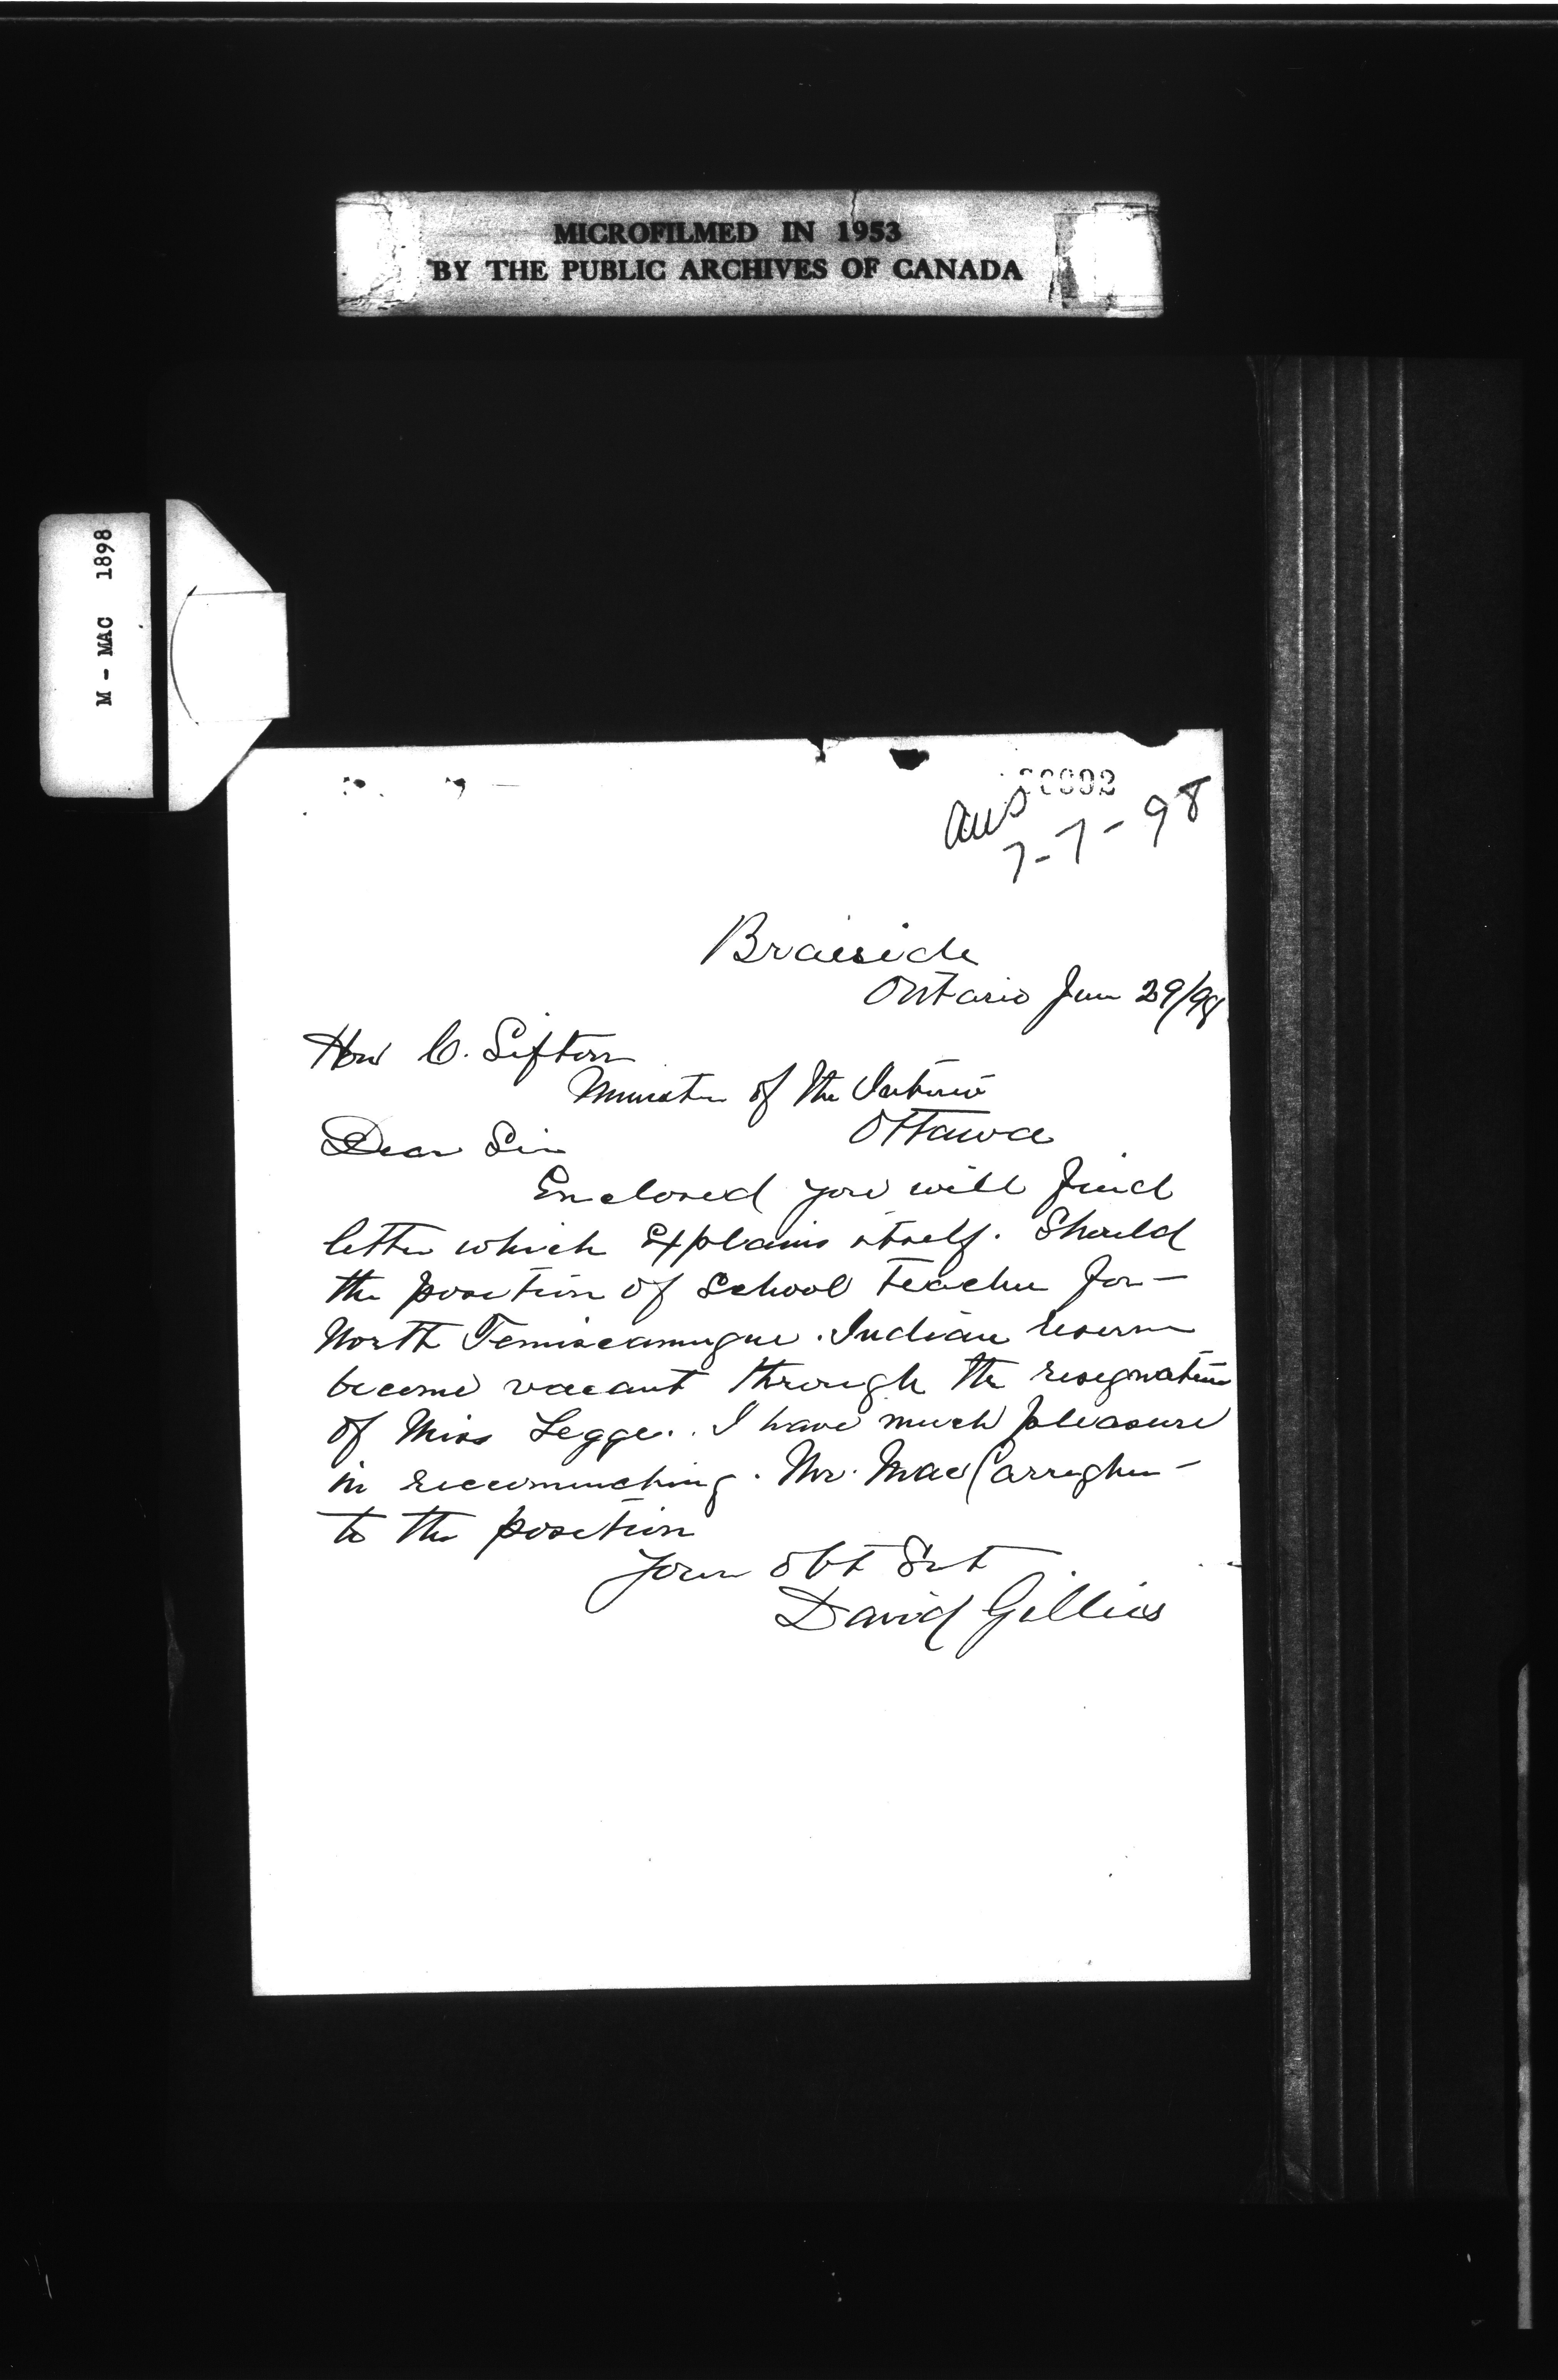 MICROFILMED IN 1953
BY THE PUBLIC ARCHIVES OF CANADA
M - MAC 1898
Ans
7-7-98
Braeside
Ontario Jun 29/98
Hon C. Sifton
Minister of the Interior
Ottawa
Dear Sir
Enclosed you will find
letter which explains itself. Should
the position of School teacher for —
North Temiscamugue. Indian reserve
become vacant through the resignation
of Miss Legge.. I have much pleasure
in reccomending. Mr. Mac Carragher —
to the position
Your Obt Srt
David Gillies